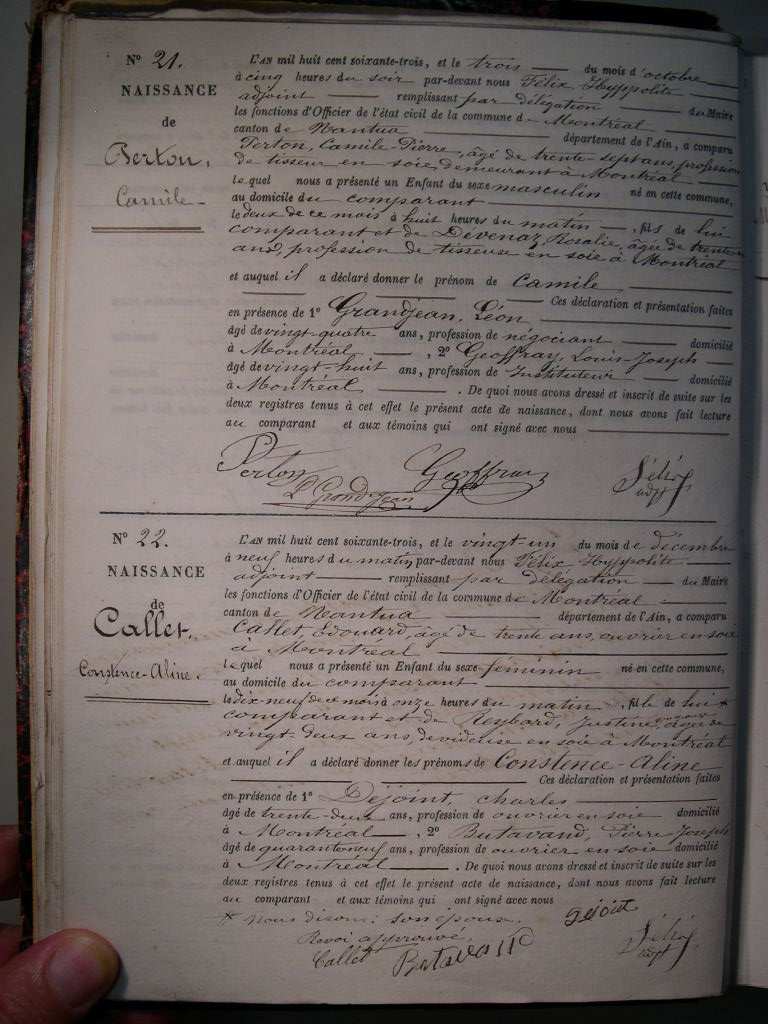 N° 21.
NAISSANCE
de
Perton,
Camile
L'AN mil huit cent soixante-trois, et le trois du mois d'octobre
à cinq heures du soir par-devant nous Félix Hyppolite
adjoint remplissant par délégation du Maire
les fonctions d'Officier de l'état civil de la commune de Montréal
canton de Nantua département de l'Ain, a comparu
Perton, Camile-Pierre, âgé de trente-sept ans, profession
de tisseur en soie demeurant à Montréal
lequel nous a présenté un Enfant du sexe masculin né en cette commune,
au domicile du comparant
le deux de ce mois à huit heures du matin, fils de lui
comparant et de Devenaz, Rosalie, âgée de trente
ans, profession de tisseuse en soie à Montréal
et auquel il a déclaré donner le prénom de Camile
Ces déclaration et présentation faites
en présence de 1° Grandjean, Léon
âgé de vingt-quatre ans, profession de négociant domicilié
à Montréal, 2° Geoffray, Louis-Joseph
âgé de vingt-huit ans, profession de Instituteur domicilié
à Montréal. De quoi nous avons dressé et inscrit de suite sur les
deux registres tenus à cet effet le présent acte de naissance, dont nous avons fait lecture
au comparant et aux témoins qui ont signé avec nous
Perton Geoffray Félix
L Grandjean adjt
N° 22.
NAISSANCE
de
Callet,
Constence-Aline.
L'AN mil huit cent soixante-trois, et le vingt-un du mois de décembre
à neuf heures du matin par-devant nous Félix Hyppolite
adjoint remplissant par délégation du Maire
les fonctions d'Officier de l'état civil de la commune de Montréal
canton de Nantua département de l'Ain, a comparu
Callet, Edouard, âgé de trente ans, ouvrier en soie
à Montréal
lequel nous a présenté un Enfant du sexe féminin né en cette commune,
au domicile du comparant
le dix-neuf de ce mois à onze heures du matin, fille de lui *
comparant et de Reybard, Justine, âgée de
vingt deux ans, devideuse en soie à Montréal
et auquel il a déclaré donner les prénoms de Constence-Aline
Ces déclaration et présentation faites
en présence de 1° Dejoint, charles
âgé de trente-deux ans, profession de ouvrier en soie domicilié
à Montréal, 2° Butavand, Pierre Joseph
âgé de quarante neuf ans, profession de ouvrier en soie domicilié
à Montréal. De quoi nous avons dressé et inscrit de suite sur les
deux registres tenus à cet effet le présent acte de naissance, dont nous avons fait lecture
au comparant et aux témoins qui ont signé avec nous
* nous disons: son épouse. Dejoint
Renvoi approuvé.
Callet Butavand Félix
adjt